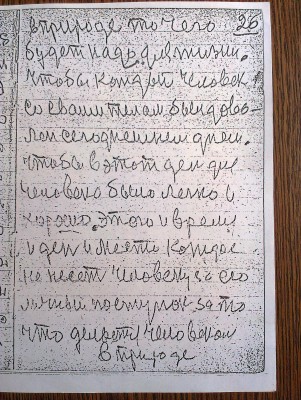 в природе то чего 26
будет надо для жизни.
чтобы каждый человек
со своим телом был дово-
лен сегоднешнем днем.
чтобы в этот ден для
человека было легко и
хорошо. этого и время
и ден и место каждое
не несет человеку за его
личный поступок за то
что делается человеком
в природе